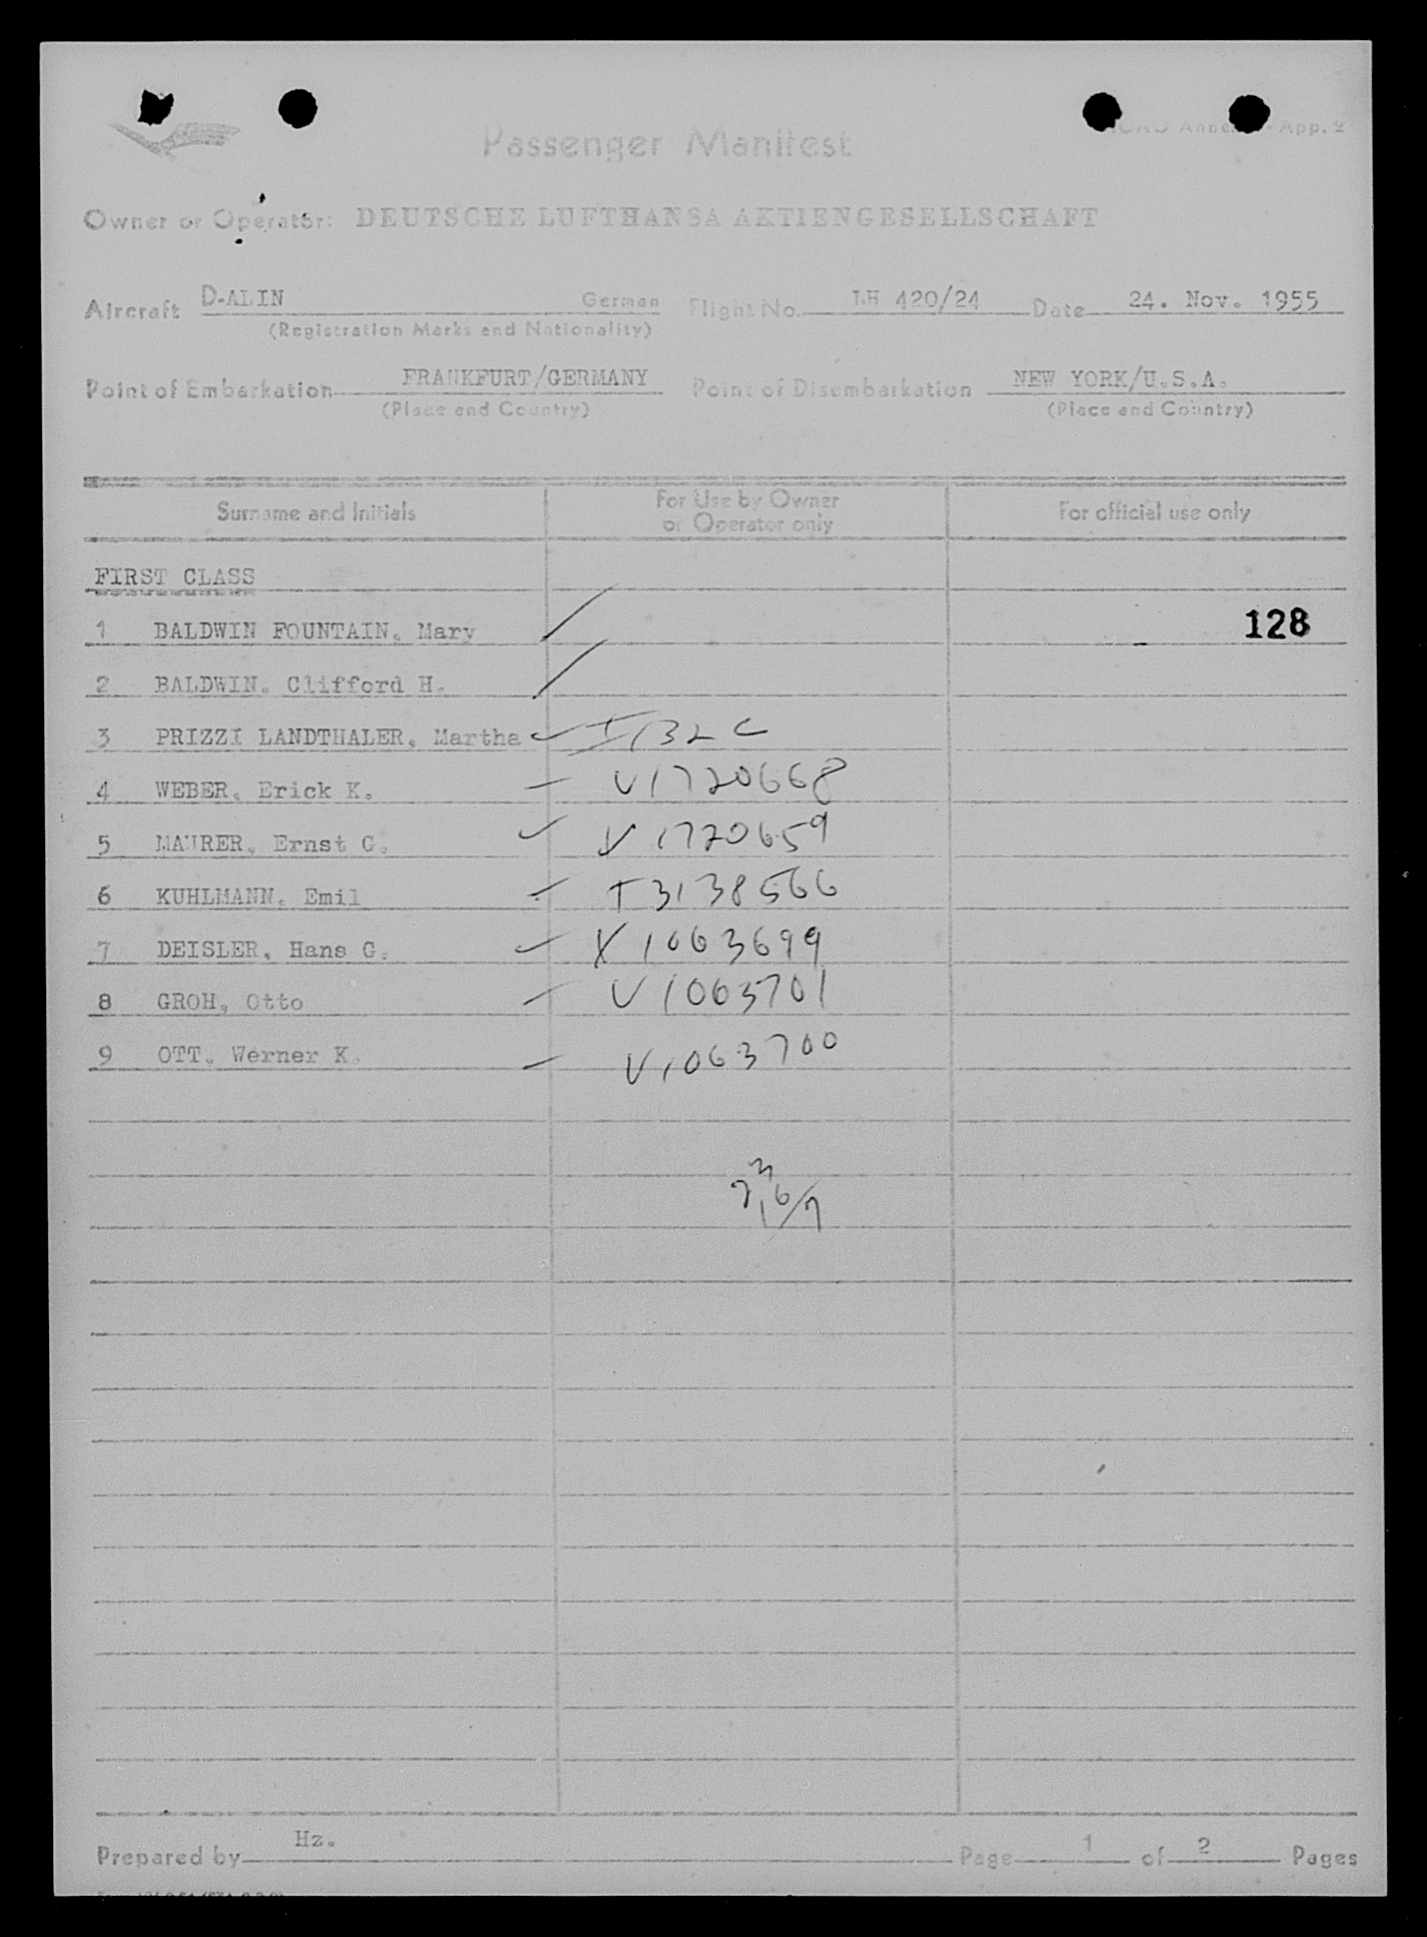 Passenger Manifest
App. 2
Owner or Operator: DEUTSCHE LUFTHANSA AKTIENGESELLSCHAFT
Aircraft D-ALIN German Flight No. LH 420/24 Date 24. Nov. 1955
(Registration Marks and Nationality)
Point of Embarkation FRANKFURT/GERMANY Point of Disembarkation NEW YORK/U.S.A.
(Place and Country) (Place and Country)
Surname and Initials For Use by Owner or Operator only For official use only
FIRST CLASS
1 BALDWIN FOUNTAIN, Mary 128
2 BALDWIN, Clifford H.
3 PRIZZI LANDTHALER, Martha I132C
4 WEBER, Erick K. V1720668
5 MAURER, Ernst G. V 1720659
6 KUHLMANN, Emil I3138566
7 DEISLER, Hans G. V 1063699
8 GROH, Otto V1063701
9 OTT, Werner K. V1063700
Prepared by Hz. Page 1 of 2 Pages